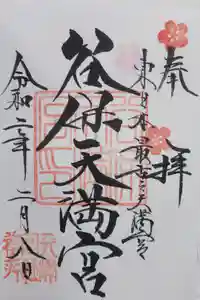 奉拝
東日本最古天満宮
谷保天満宮
令和二年二月八日